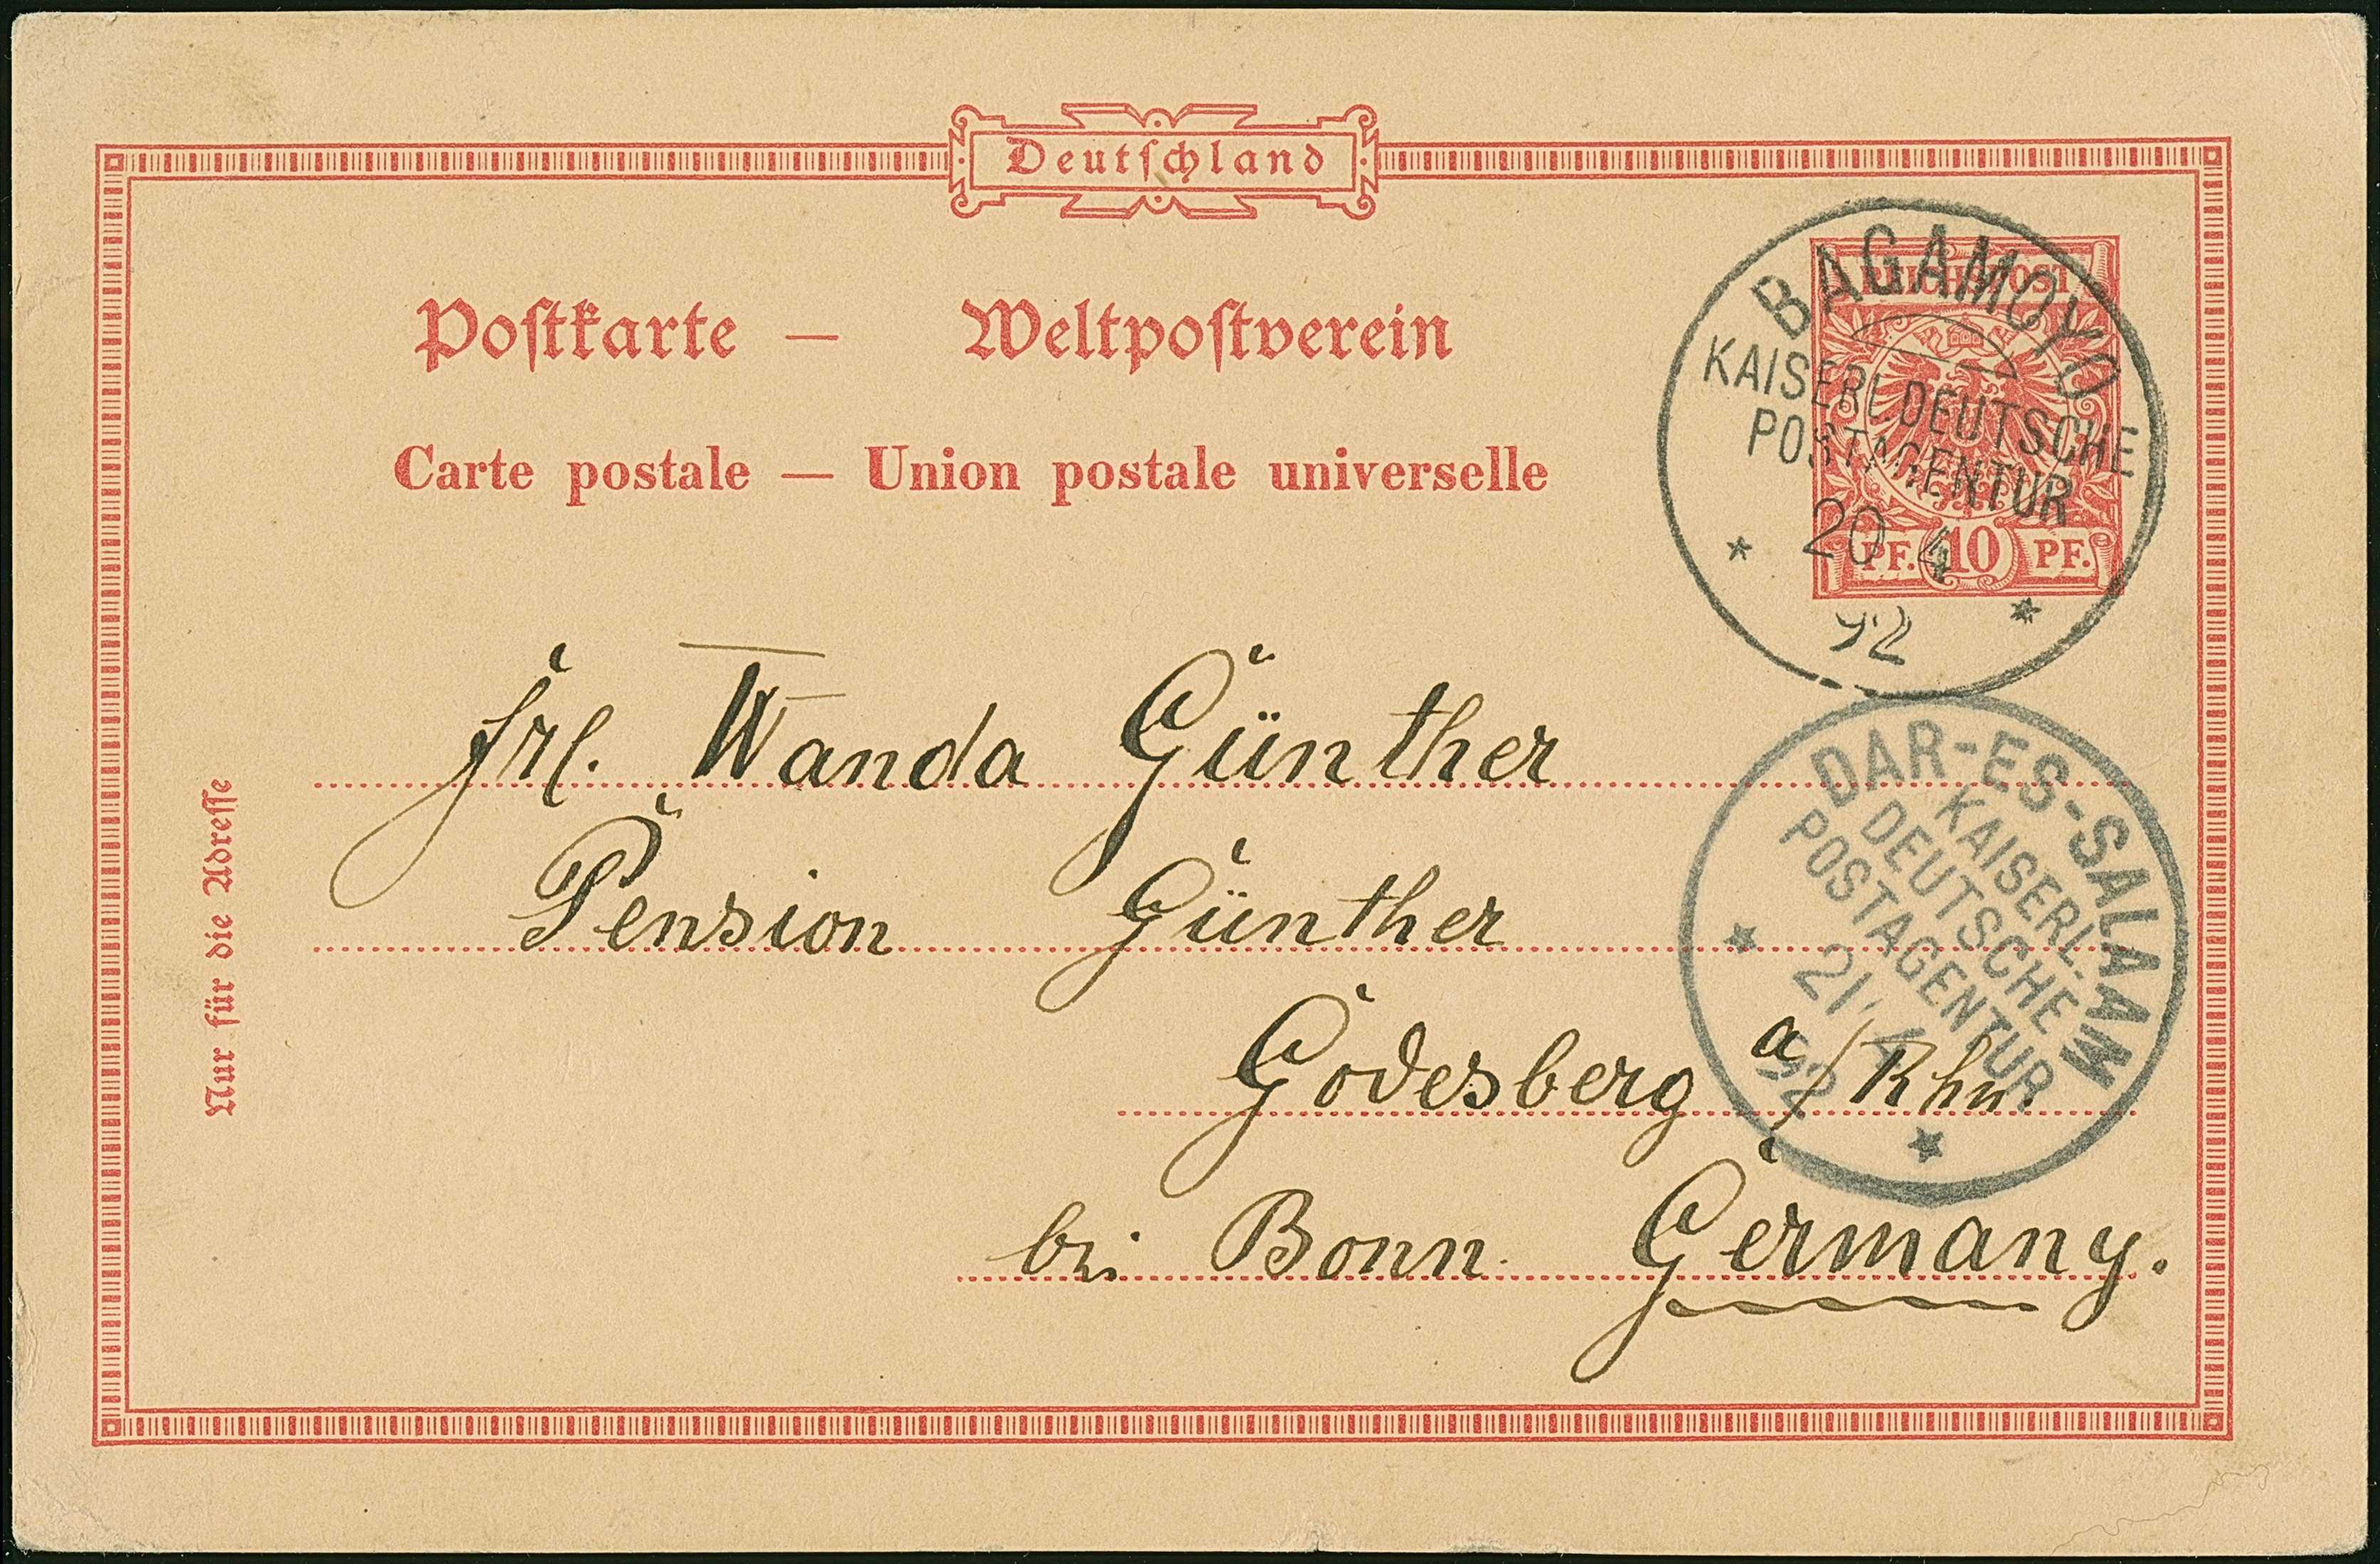 Deutschland
Postkarte — Weltpostverein
Carte postale — Union postale universelle
REICHSPOST
PF. 10 PF.
BAGAMOYO
KAISERL. DEUTSCHE
POSTAGENTUR
20 4
92
Frl. Wanda Günther
Pension Günther
Godesberg a/Rhn.
bei Bonn Germany.
DAR-ES-SALAAM
KAISERL.
DEUTSCHE
POSTAGENTUR
21 4
92
Nur für die Adresse